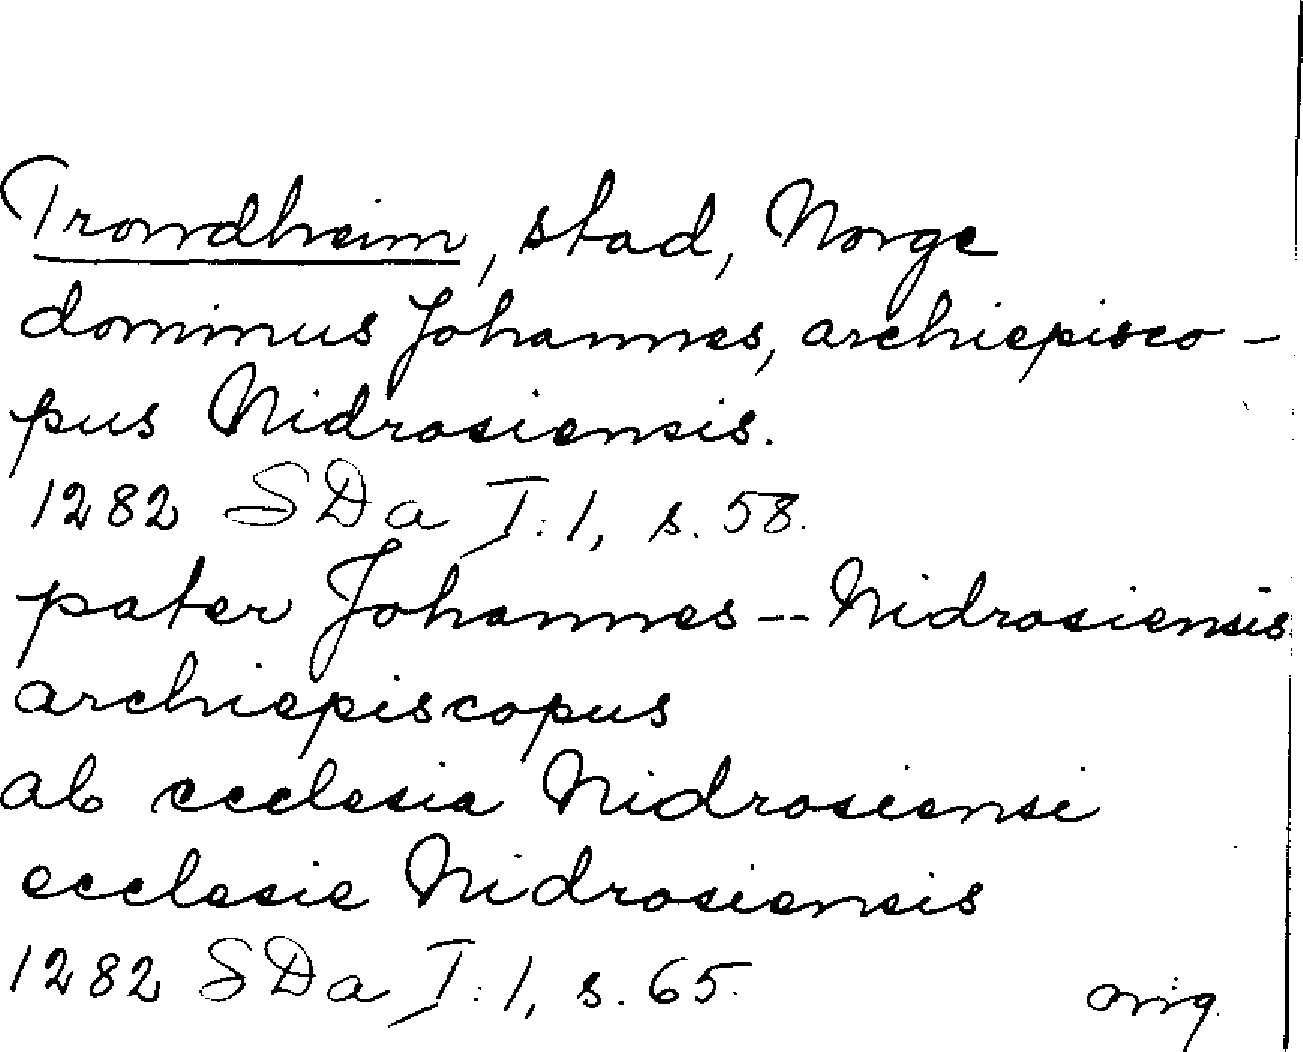 Trondheim, stad, Norge
dominus Johannes, archiepisco-
pus Nidrosiensis.
1282 SDa I:1, s. 58.
pater Johannes -- Nidrosiensis
archiepiscopus
ab ecclesia Nidrosiensi
ecclesie Nidrosiensis
1282 SDa I:1, s. 65.
orig.